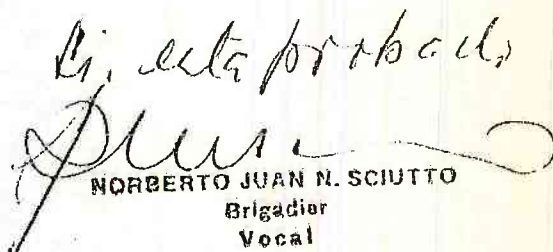 Si, esta probado
NORBERTO JUAN N. SCIUTTO
Brigadier
Vocal